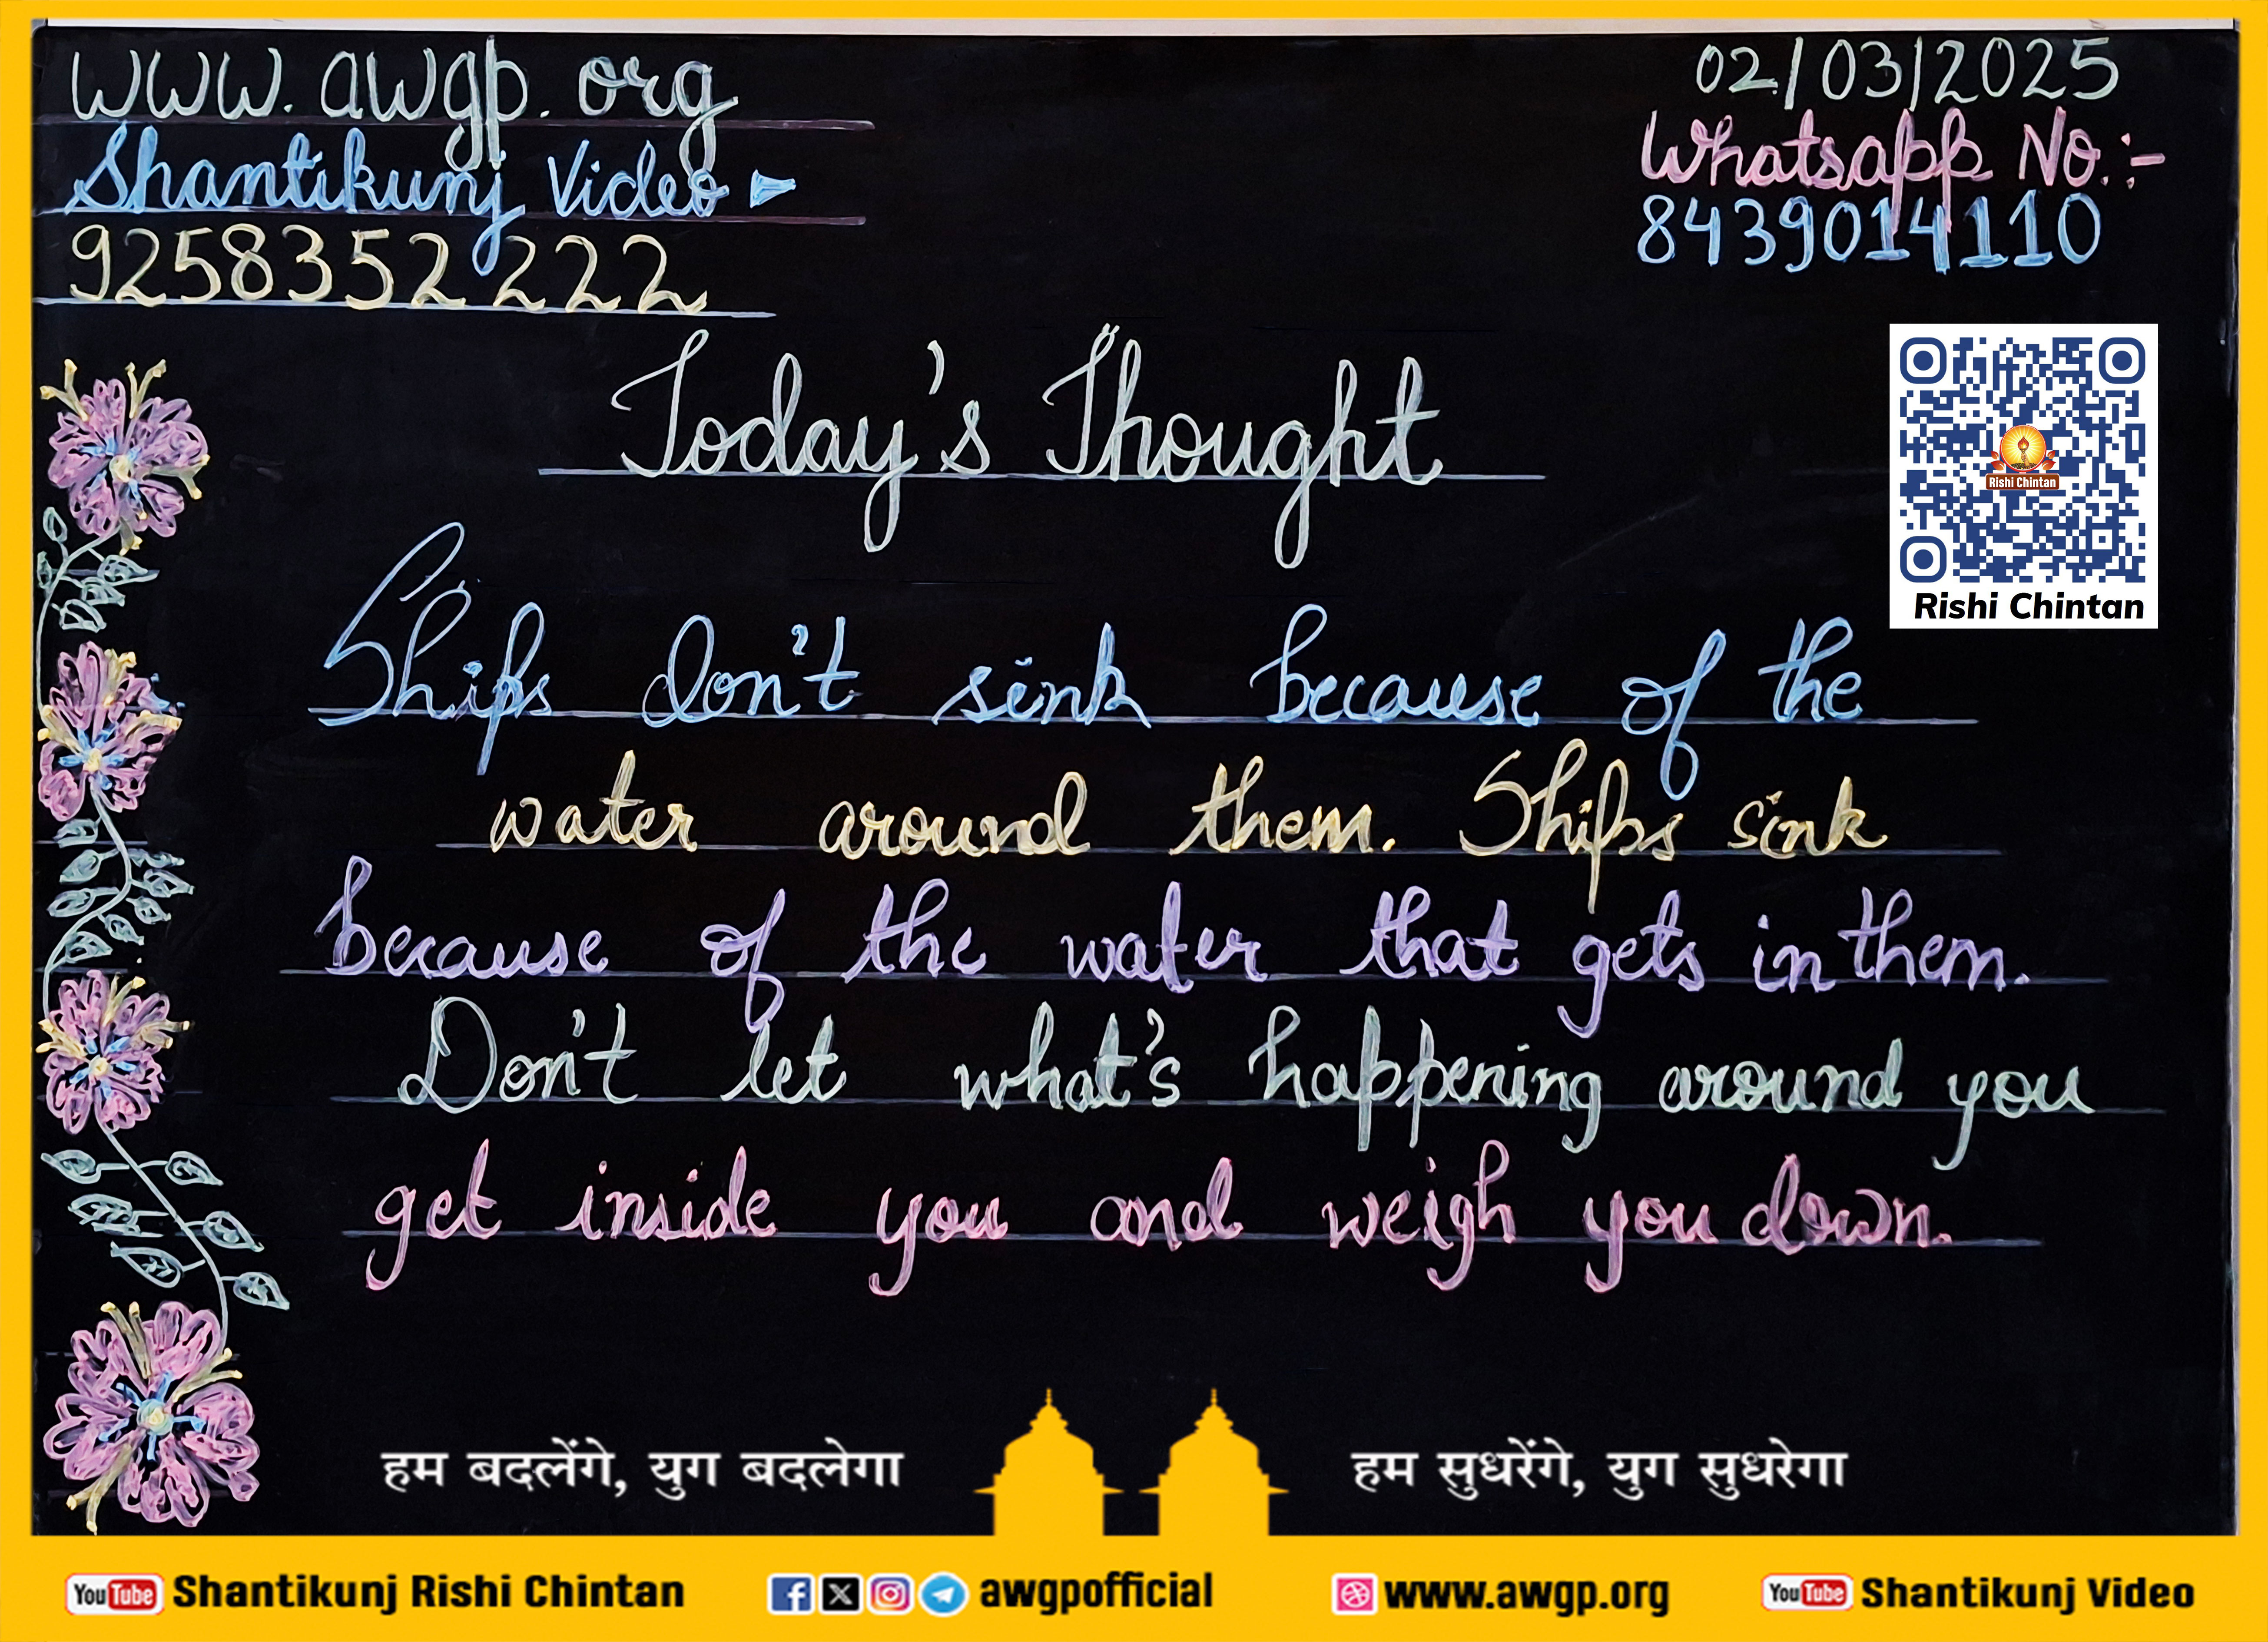 www.awgp.org
Shantikunj Video
9258352222
02/03/2025
Whatsapp No.:-
8439014110
Today's Thought
Rishi Chintan
Rishi Chintan
Ships don't sink because of the
water around them. Ships sink
because of the water that gets in them.
Don't let what's happening around you
get inside you and weigh you down.
हम बदलेंगे, युग बदलेगा
हम सुधरेंगे, युग सुधरेगा
YouTube Shantikunj Rishi Chintan
awgpofficial
www.awgp.org
YouTube Shantikunj Video